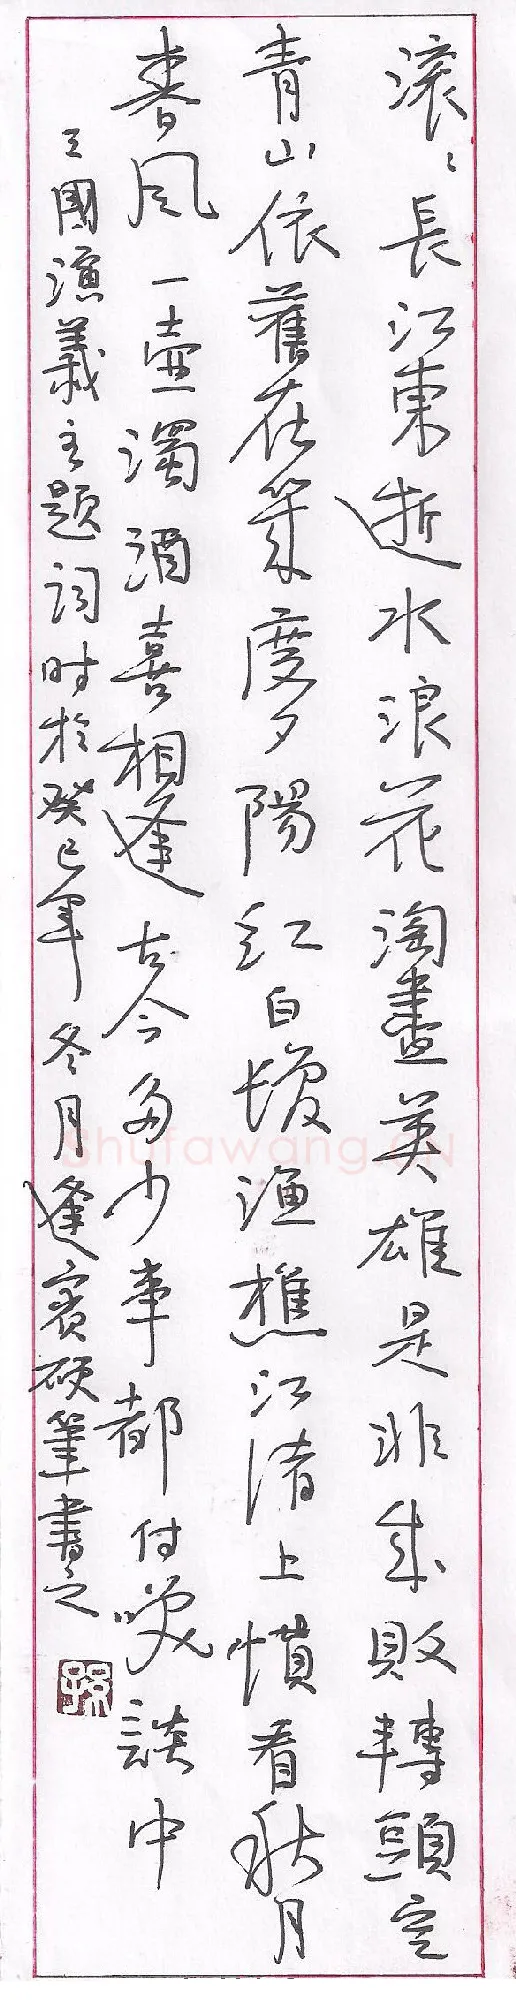 滚〻長江東逝水浪花淘盡英雄是非成敗轉頭空
青山依舊在幾度夕陽紅白髮漁樵江渚上慣看秋月
春風一壺濁酒喜相逢古今多少事都付笑談中
三國演義主題詞时於癸巳年冬月逢賓硬筆書之
Shufawang.CN